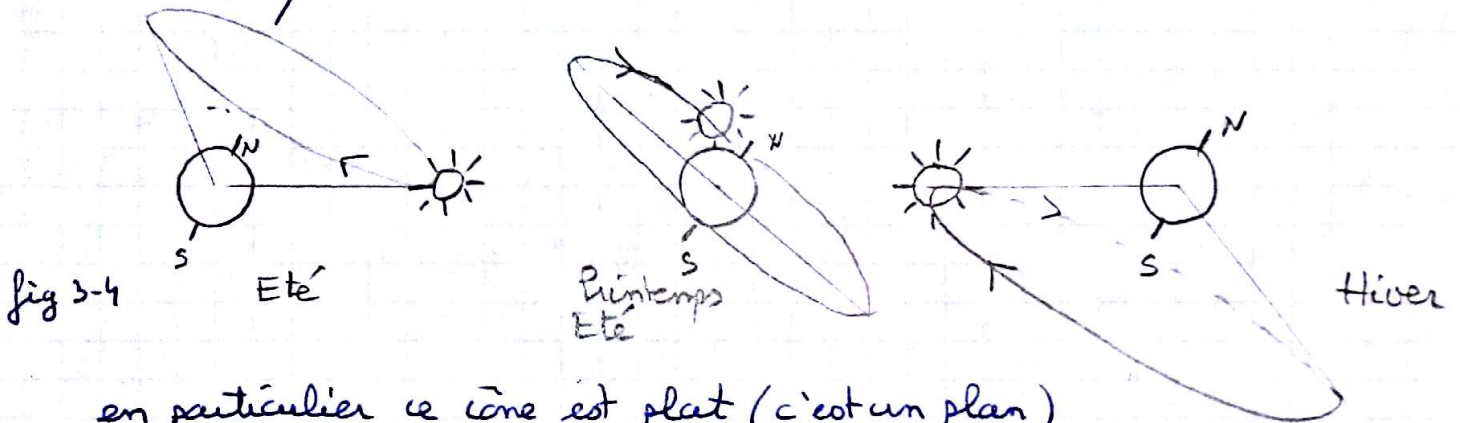 N
N
N
S
S
S
fig 3-4
Eté
Printemps
Eté
Hiver
en particulier ce cône est plat (c'est un plan)